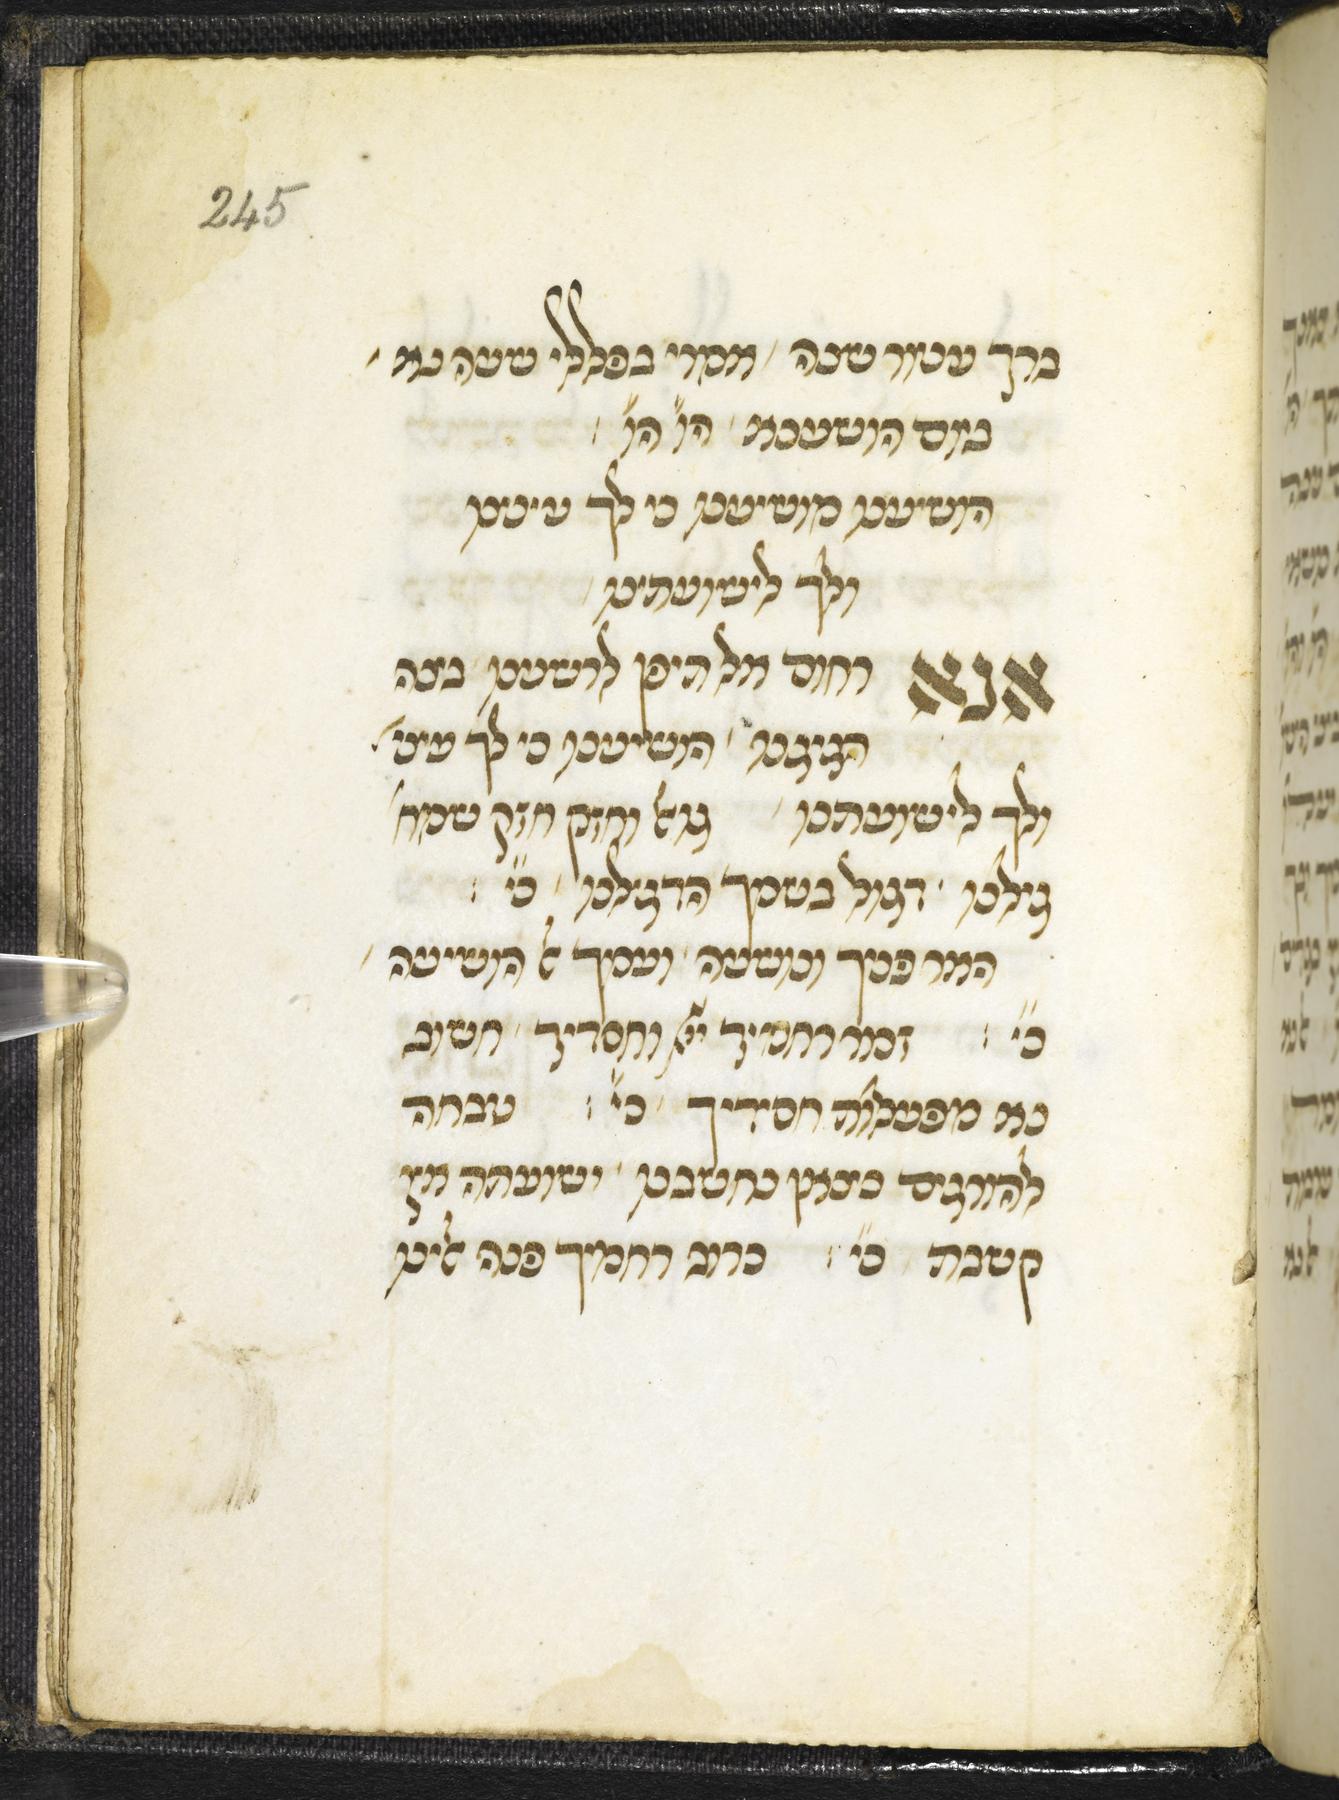 245
ברך עטור שנה / אמרי בפללי שעה נא /
ביום הושענא / הו" הו" /
הושיענו מושיענו כי לך עינינו
ולך לישועתינו /
אנא רחום אל תיפן לרשענו בינה
הגיגנו / הושיענו כי לך עינ'
ולך לישועתנו / חזק חזק שמח
גילנו / דגול בשמך הדגילנו / כי" /
המר פטך וטושעה / ועמך הושיעה /
כי" / זכור רחמיך יי וחסדיך / חשוב
נא מפעלות חסידיך / כי" / טבחה
להורגים כצאן נחשבנו / ישועתה אין
קשבת / כי" / כרוב רחמיך פנה אלינו